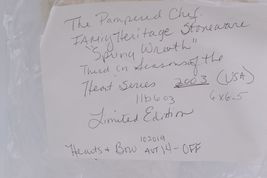 The Pampered Chef
Family Heritage Stoneware
"Spring Wreath"
Third in Seasons of the
Heart Series 2003 (USA)
116603 6x6.5
Limited Edition
102019
Hearts + Bow AUT 14-OFF